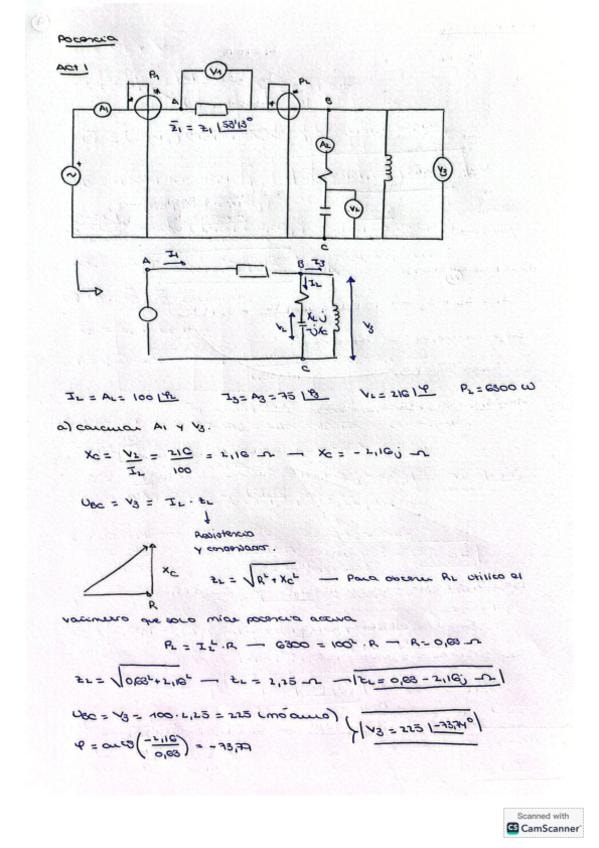 Potencia
ACT 1
P1
V1
P2
A
B
A1
Z̄1 = Z1 ∠53'13°
A2
V3
V2
C
A
I1
B
I3
I2
V2
-jXc
V3
C
I2 = A2 = 100 ∠φ2    I3 = A3 = 75 ∠φ3    V2 = 216 ∠φ    P2 = 6300 W
a) calcular A1 y V3.
Xc = V2/I2 = 216/100 = 2,16 Ω → Xc = -2,16j Ω
UBC = V3 = I2 · Z2
Resistencia
y condensador.
Xc
R
Z2 = √R² + Xc² — Para obtener R2 utilizo el
vatímetro que solo mide potencia activa
P2 = I2² · R → 6300 = 100² · R → R = 0,63 Ω
Z2 = √0,63² + 2,16² → Z2 = 2,25 Ω → Z2 = 0,63 - 2,16j Ω
UBC = V3 = 100 · 2,25 = 225 (módulo) } V3 = 225 ∠-73,74°
φ = arctg (-2,16/0,63) = -73,74
Scanned with
CS CamScanner